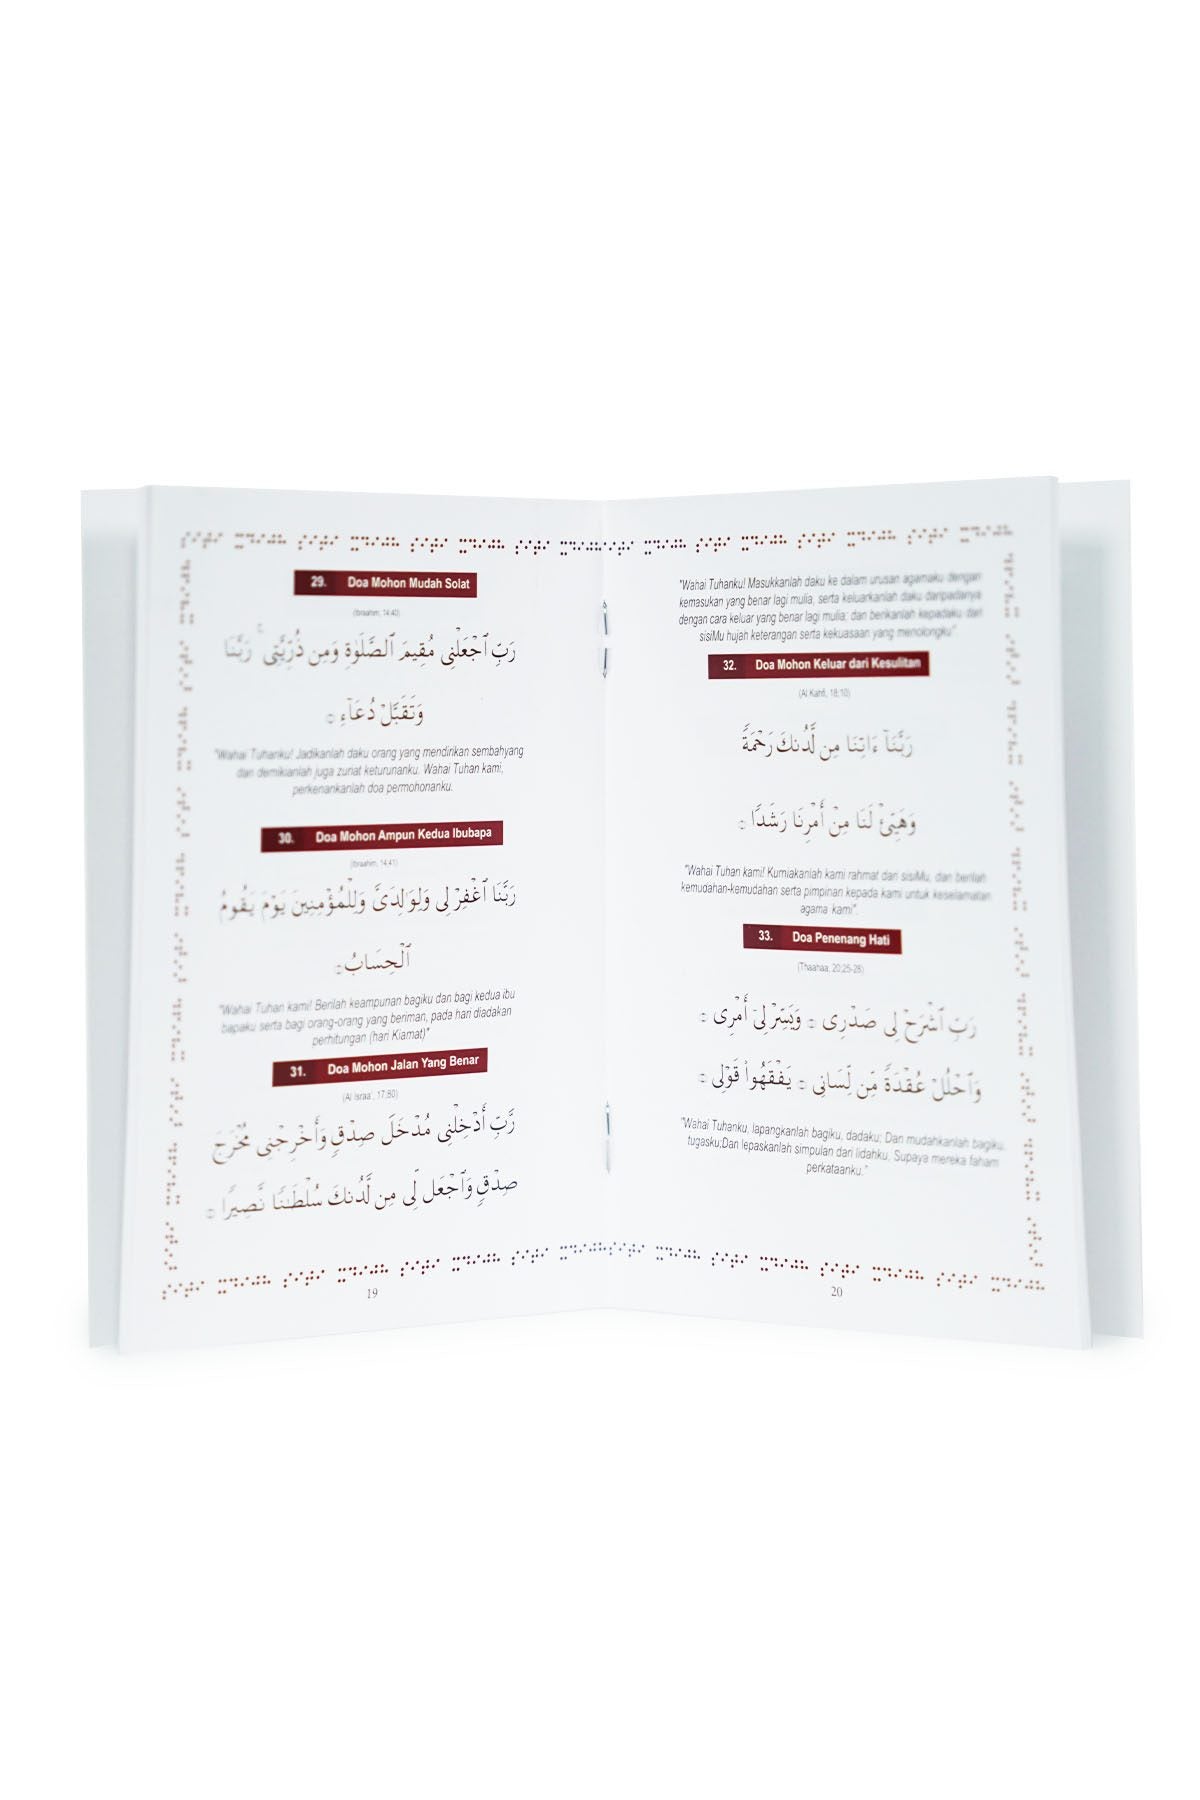 29. Doa Mohon Mudah Solat
(Ibraahim, 14:40)
رَبِّ ٱجْعَلْنِى مُقِيمَ ٱلصَّلَوٰةِ وَمِن ذُرِّيَّتِى ۚ رَبَّنَا
وَتَقَبَّلْ دُعَآءِ
"Wahai Tuhanku! Jadikanlah daku orang yang mendirikan sembahyang
dan demikianlah juga zuriat keturunanku. Wahai Tuhan kami,
perkenankanlah doa permohonanku.
30. Doa Mohon Ampun Kedua Ibubapa
(Ibraahim, 14:41)
رَبَّنَا ٱغْفِرْ لِى وَلِوَٰلِدَىَّ وَلِلْمُؤْمِنِينَ يَوْمَ يَقُومُ
ٱلْحِسَابُ
"Wahai Tuhan kami! Berilah keampunan bagiku dan bagi kedua ibu
bapaku serta bagi orang-orang yang beriman, pada hari diadakan
perhitungan (hari Kiamat)"
31. Doa Mohon Jalan Yang Benar
(Al Israa', 17:80)
رَّبِّ أَدْخِلْنِى مُدْخَلَ صِدْقٍ وَأَخْرِجْنِى مُخْرَجَ
صِدْقٍ وَٱجْعَل لِّى مِن لَّدُنكَ سُلْطَٰنًا نَّصِيرًا
19
"Wahai Tuhanku! Masukkanlah daku ke dalam urusan agamaku dengan
kemasukan yang benar lagi mulia, serta keluarkanlah daku daripadanya
dengan cara keluar yang benar lagi mulia; dan berikanlah kepadaku dari
sisiMu hujah keterangan serta kekuasaan yang menolongku".
32. Doa Mohon Keluar dari Kesulitan
(Al Kahfi, 18:10)
رَبَّنَآ ءَاتِنَا مِن لَّدُنكَ رَحْمَةً
وَهَيِّئْ لَنَا مِنْ أَمْرِنَا رَشَدًا
"Wahai Tuhan kami! Kurniakanlah kami rahmat dari sisiMu, dan berilah
kemudahan-kemudahan serta pimpinan kepada kami untuk keselamatan
agama kami".
33. Doa Penenang Hati
(Thaahaa, 20:25-28)
رَبِّ ٱشْرَحْ لِى صَدْرِى وَيَسِّرْ لِىٓ أَمْرِى
وَٱحْلُلْ عُقْدَةً مِّن لِّسَانِى يَفْقَهُوا۟ قَوْلِى
"Wahai Tuhanku, lapangkanlah bagiku, dadaku; Dan mudahkanlah bagiku,
tugasku;Dan lepaskanlah simpulan dari lidahku, Supaya mereka faham
perkataanku."
20